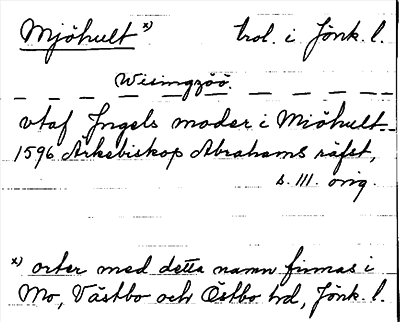 Mjöhult x) trol. i Jönk. l.
Wisingzöö.
vtaf Jngels moder i Miöhult
1596 Ärkebiskop Abrahams räfst,
s. 111. orig.
x) orter med detta namn finnas i
Mo, Västbo och Östbo hd, Jönk. l.